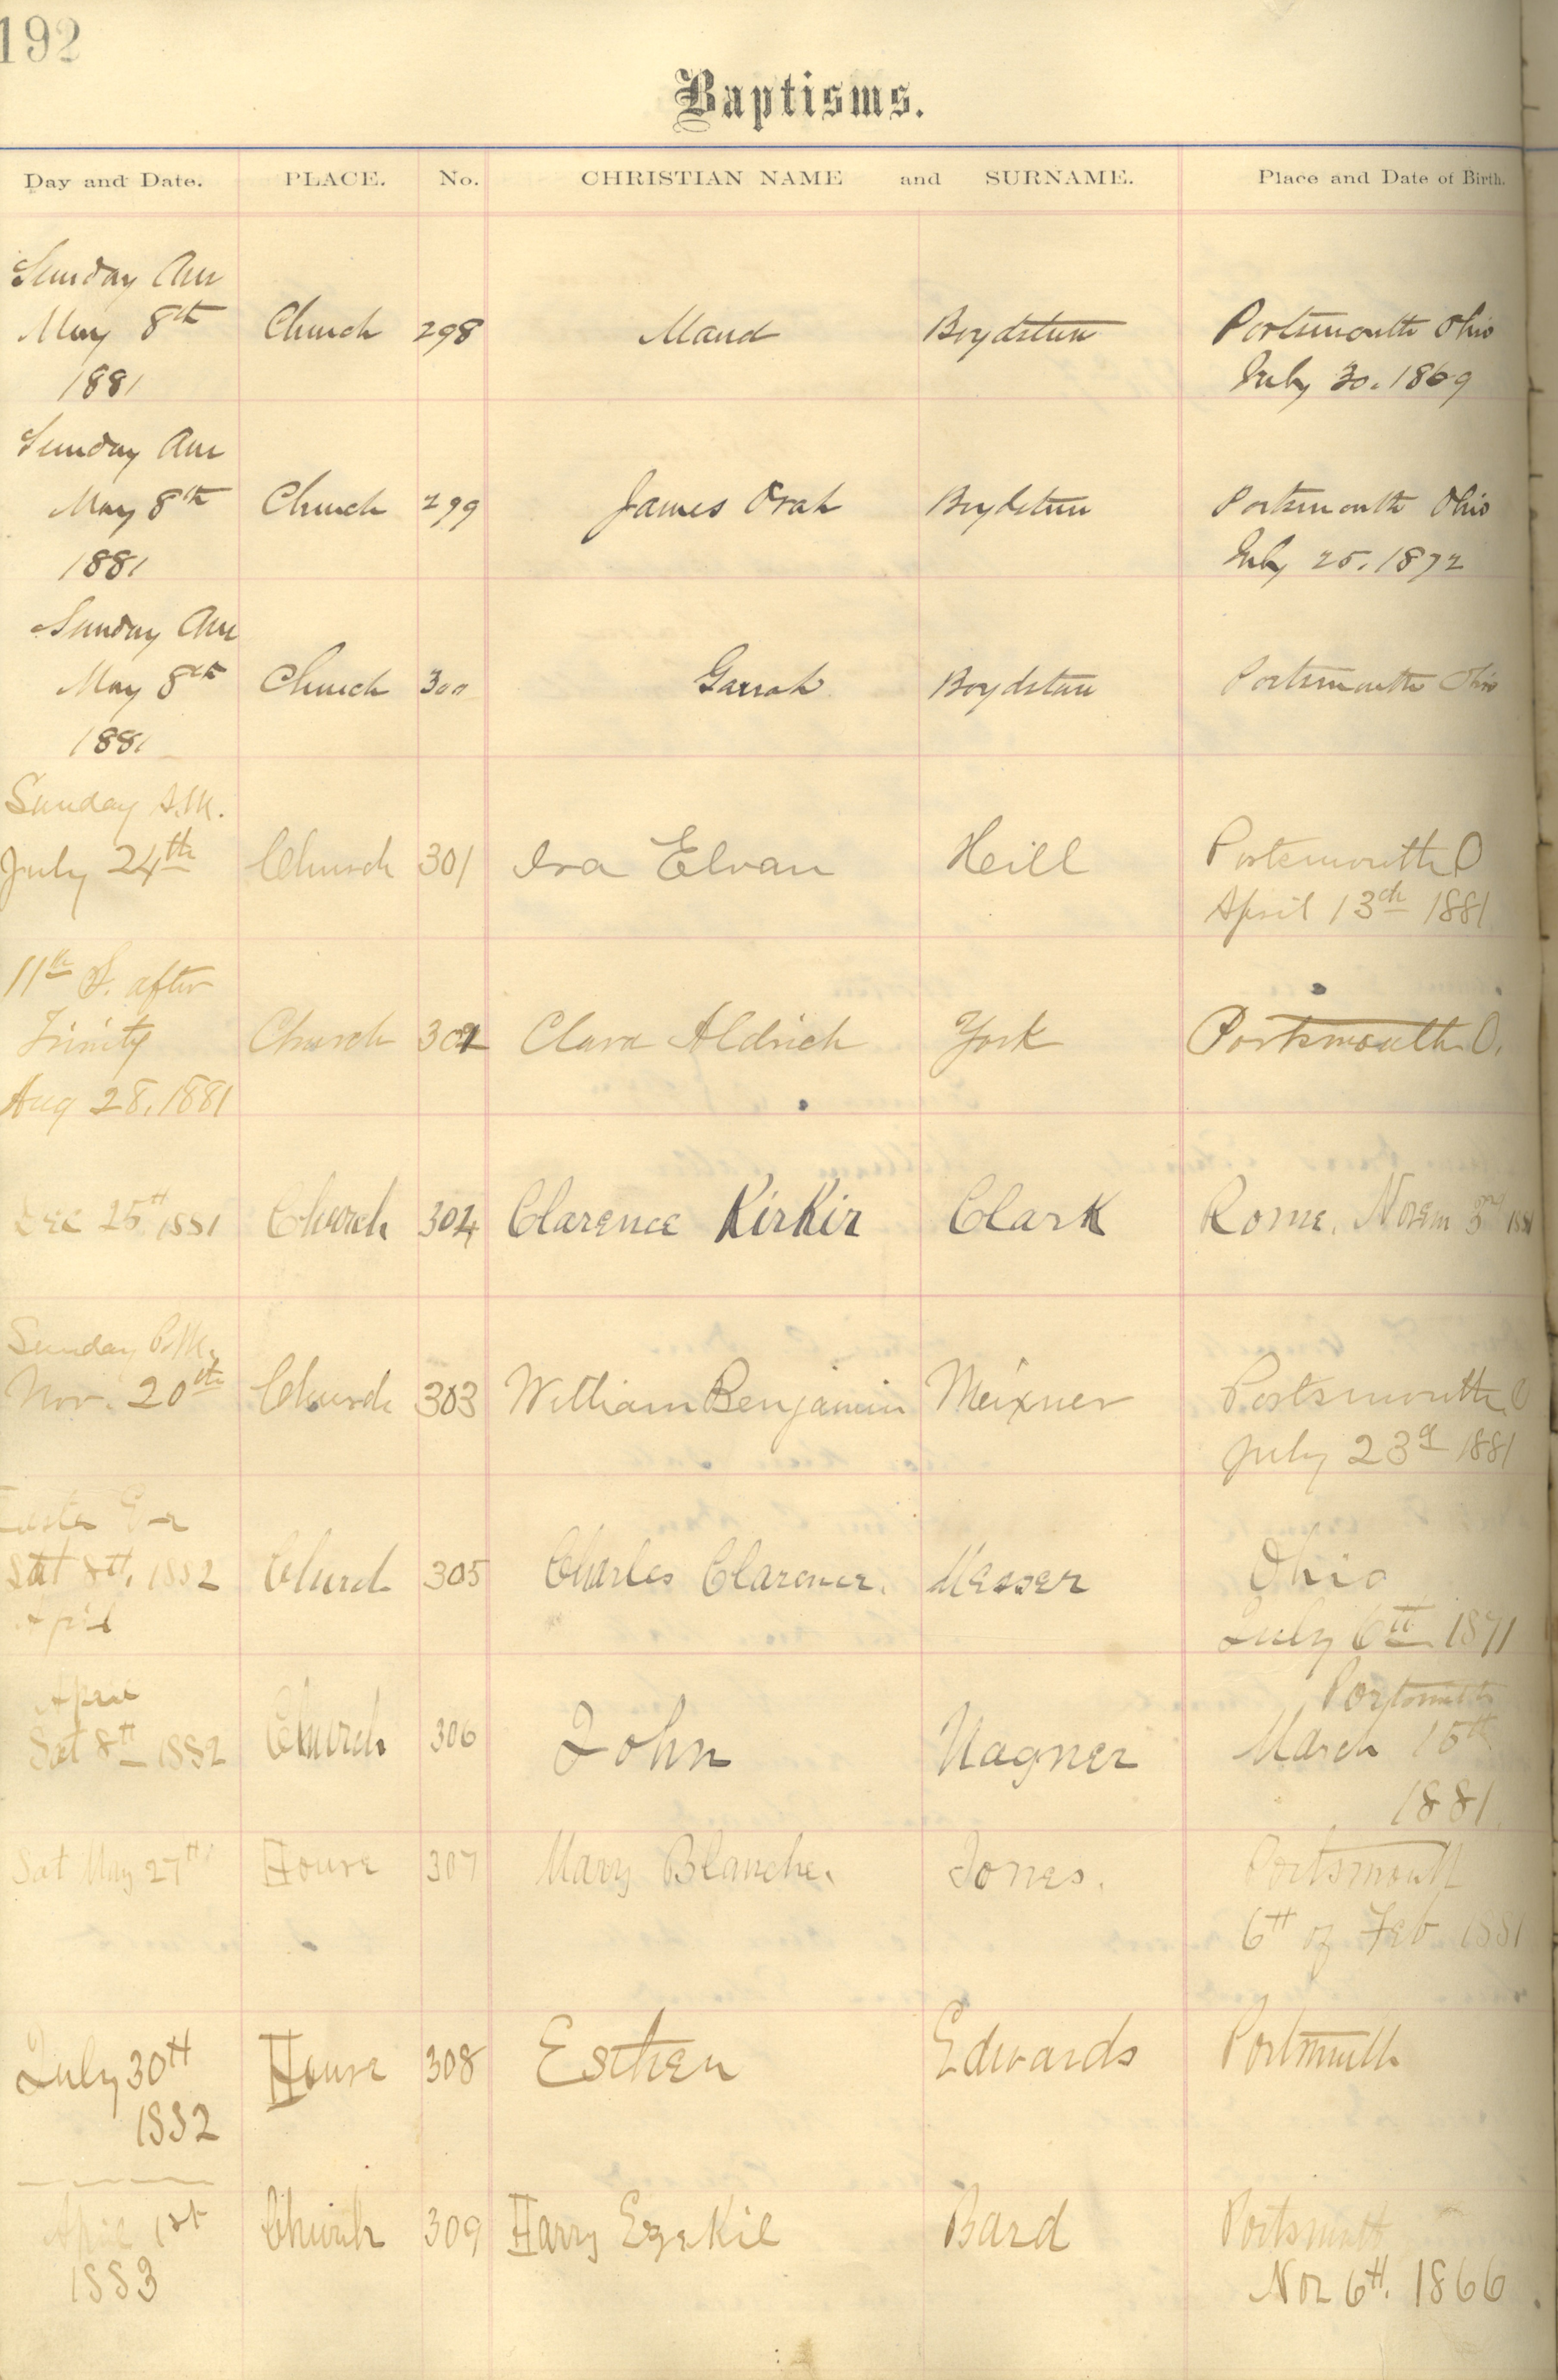 192
Baptisms.
Day and Date. PLACE. No. CHRISTIAN NAME and SURNAME. Place and Date of Birth.
Sunday Am
May 8th Church 298 Maud Boydstun Portsmouth Ohio
1881 July 30. 1869
Sunday Am
May 8th Church 299 James Orah Boydstun Portsmouth Ohio
1881 July 25. 1872
Sunday Am
May 8th Church 300 Garrah Boydstun Portsmouth Ohio
1881
Sunday A.M.
July 24th Church 301 Ira Elvan Heill Portsmouth O
April 13th 1881
11th S. after
Trinity Church 302 Clara Aldrich York Portsmouth O.
Aug 28. 1881
Dec 25th 1881 Church 304 Clarence Kirkir Clark Rome. Novem 3rd 1881
Sunday P.M.
Nov. 20th Church 303 William Benjamin Meixner Portsmouth, O
July 23d 1881
Easter Eve
Sat 8th, 1882 Church 305 Charles Clarence. Messer Ohio
April July 6th 1871
April Portsmouth
Sat 8th 1882 Church 306 John Wagner March 15th
1881
Sat May 27th House 307 Mary Blanche. Jones. Portsmouth
6th of Feb 1881
July 30th House 308 Esther Edwards Portsmouth
1882
April 1st Church 309 Harry Ezekil Bard Portsmouth
1883 Nov 6th. 1866